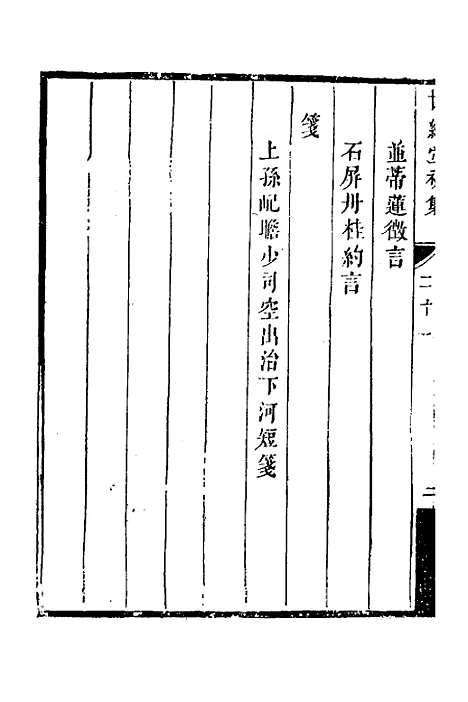 並蒂蓮徵言
石屏丹桂約言
箋
上孫屺瞻少司空出治下河短箋
二十一
二